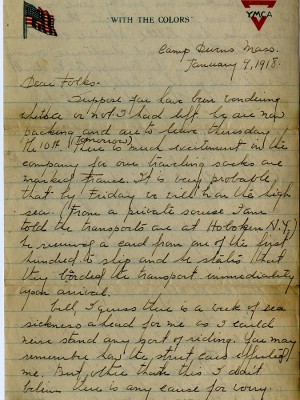 "WITH THE COLORS"
YMCA
Camp Devens Mass.
January 9, 1918.
Dear Folks:
Suppose you have been wondering
whether or not I had left. We are now
packing and are to leave Thursday
the 10th. (Tomorrow) There is much excitement in the
company for our traveling sacks are
marked France. It is very probable
that by Friday we will be on the high
sea. (From a private source I am
told the transports are at Hoboken N.Y.)
he receiving a card from one of the first
hundred to slip and he states that
they borded the transport immediately
upon arrival.
Well, I guess there is a week of sea
sickness ahead for me as I could
never stand any sort of riding. You may
remember how the street cars effected
me. But other than this I don't
believe there is any cause for worry.